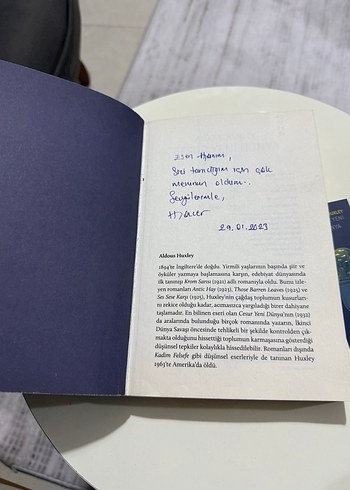 Esen Hanım,
Sizi tanıdığım için çok
memnun oldum.
Sevgilerimle,
Hacer
29.01.2023
Aldous Huxley
1894'te İngiltere'de doğdu. Yirmili yaşlarının başında şiir ve
öyküler yazmaya başlamasına karşın, edebiyat dünyasında
ilk tanınışı Krom Sarısı (1921) adlı romanıyla oldu. Bunu izle-
yen romanları Antic Hay (1923), Those Barren Leaves (1925) ve
Ses Sese Karşı (1928), Huxley'nin çağdaş toplumun kusurları-
nı rekice olduğu kadar, acımasızca yargıladığı birer dahiyane
taşlamadır. En bilinen eseri olan Cesur Yeni Dünya'nın (1932)
da aralarında bulunduğu birçok romanında yazarın, İkinci
Dünya Savaşı öncesinde tehlikeli bir şekilde kontrolden çık-
makta olduğunu hissettiği toplumun karmaşasına gösterdiği
düşünsel tepkiler kolaylıkla hissedilebilir. Romanları dışında
Kadim Felsefe gibi düşünsel eserleriyle de tanınan Huxley
1963'te Amerika'da öldü.